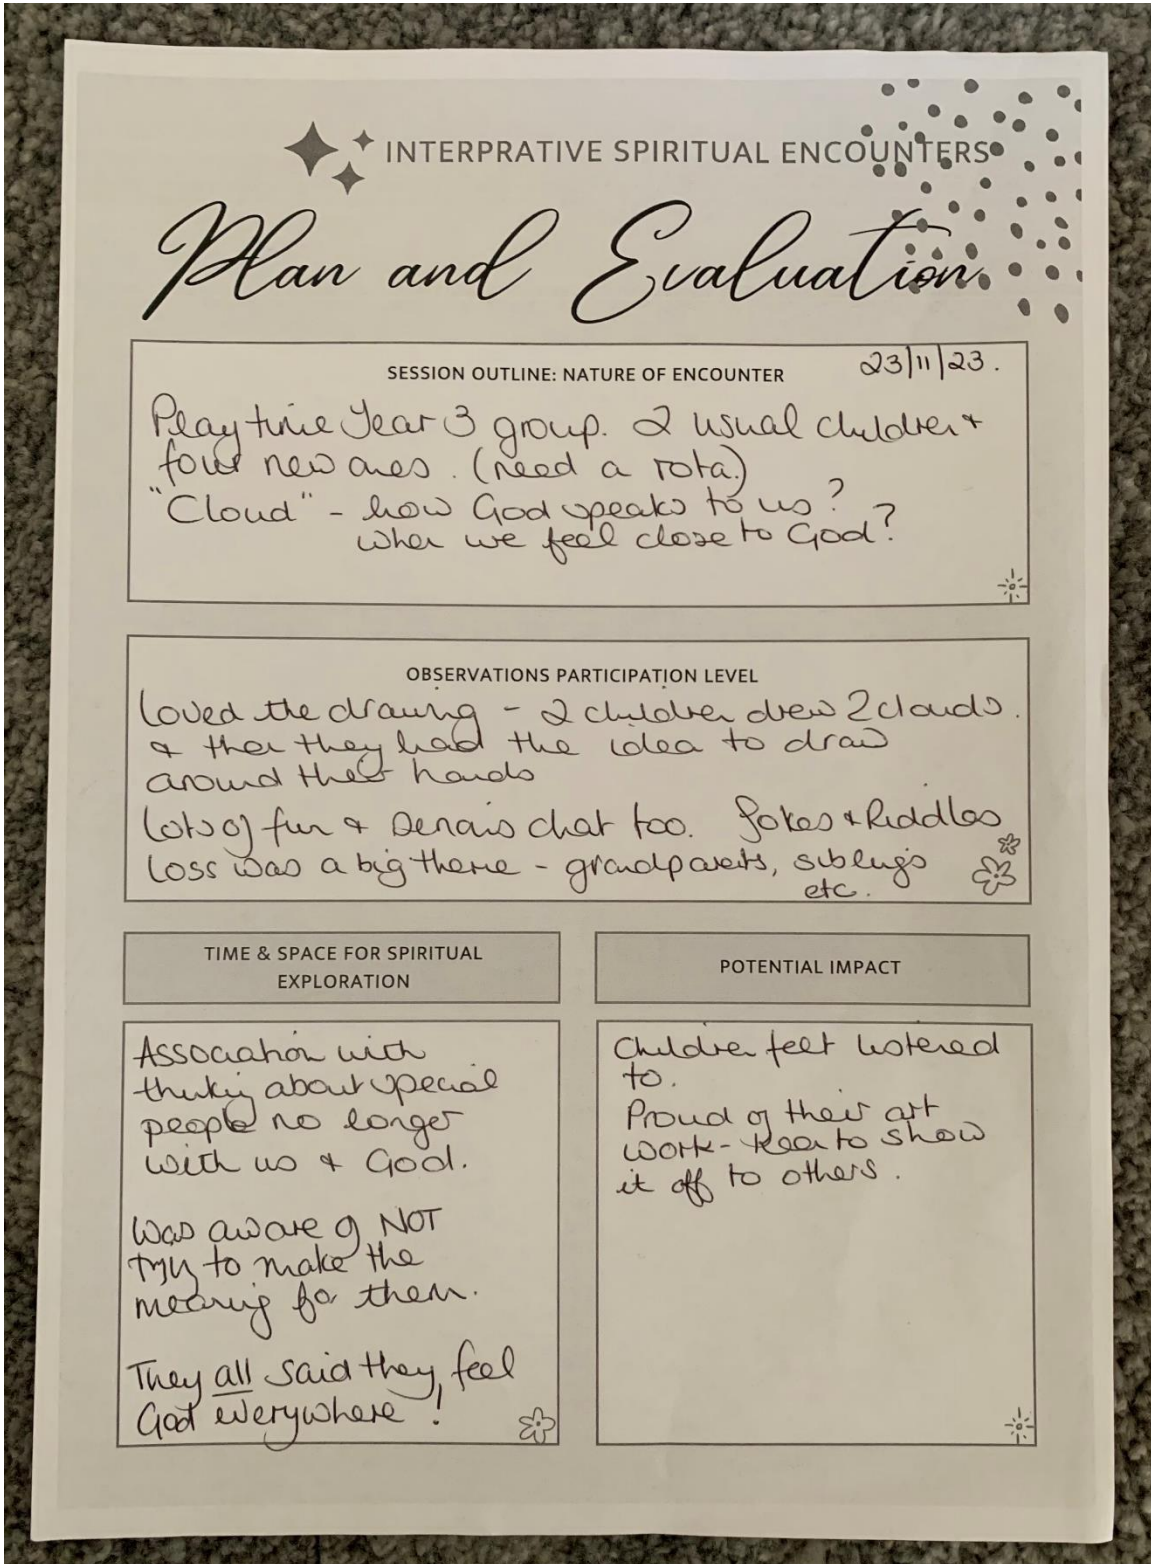 INTERPRATIVE SPIRITUAL ENCOUNTERS
Plan and Evaluation
SESSION OUTLINE: NATURE OF ENCOUNTER
23/11/23.
Playtime Year 3 group. 2 usual children +
four new ones. (need a rota.)
"Cloud" - how God speaks to us?
when we feel close to God?
OBSERVATIONS PARTICIPATION LEVEL
Loved the drawing - 2 children drew 2 clouds.
& then they had the idea to draw
around their hands
Lots of fun & serious chat too. Jokes & Riddles
Loss was a big theme - grandparents, siblings
etc.
TIME & SPACE FOR SPIRITUAL
EXPLORATION
Association with
thinking about special
people no longer
with us & God.
Was aware of NOT
trying to make the
meaning for them.
They all said they feel
God everywhere!
POTENTIAL IMPACT
Children felt listened
to.
Proud of their art
work - keen to show
it off to others.